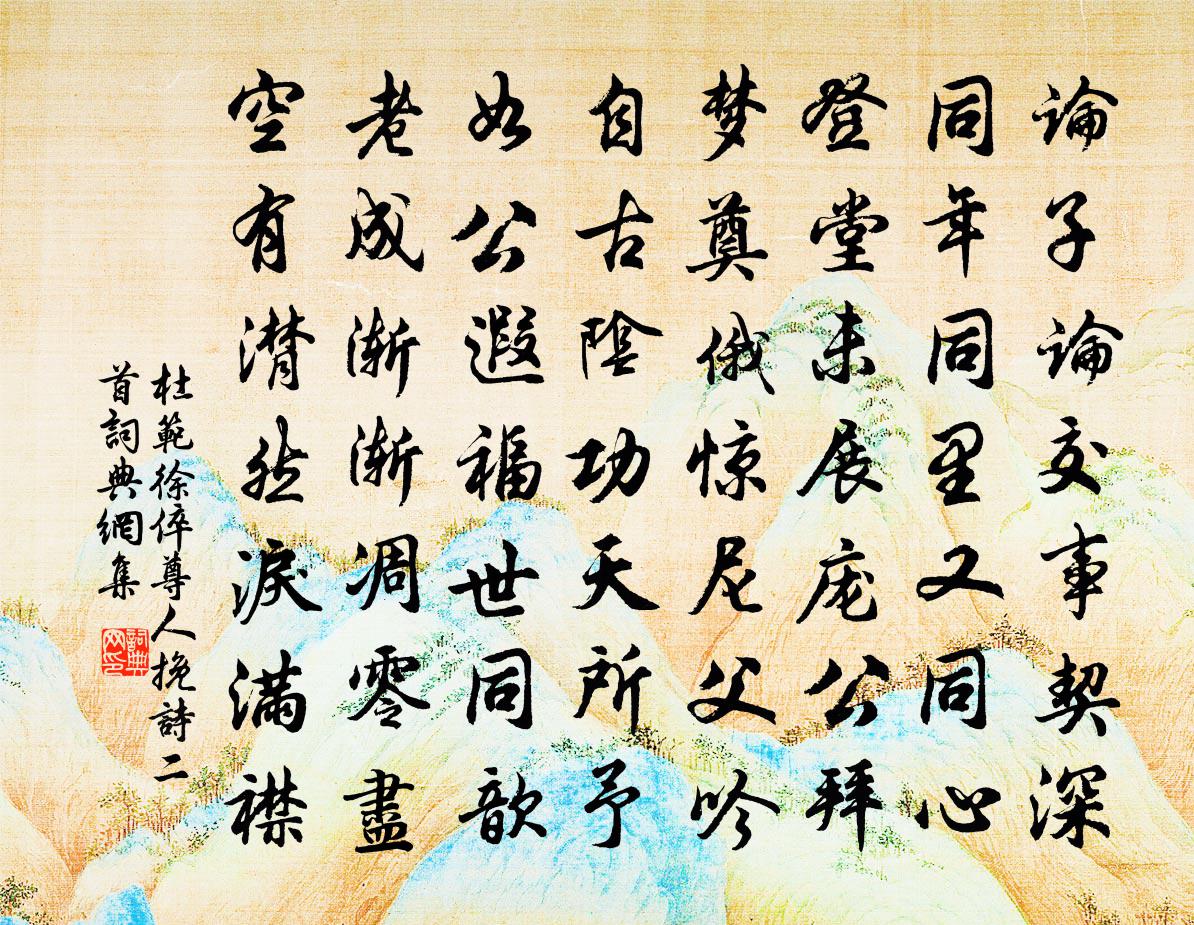 論子論交事契深
同年同里又同心
登堂未展庞公拜
梦奠俄惊尼父吟
自古陰功天所予
如公遐福世同歆
老成渐渐凋零盡
空有潸然淚滿襟
杜範徐倅尊人挽詩二
首詞典網集
詞典
网印